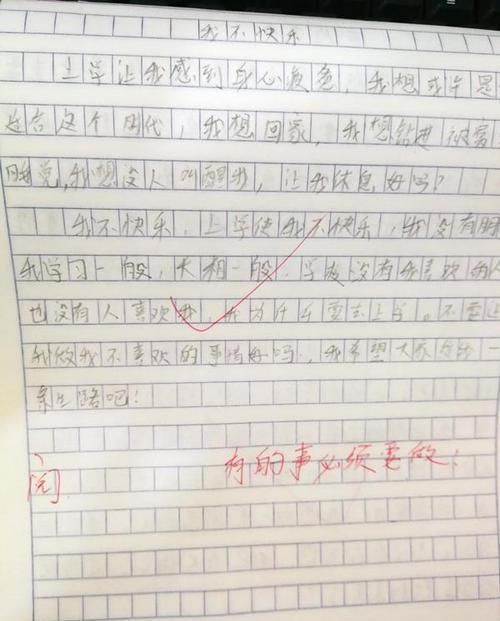 我不快乐
上学让我感到身心疲惫，我想或许是
适合这个时代，我想回家，我想钻进被窝
睡觉，我想没人叫醒我，让我休息好吗？
我不快乐，上学使我不快乐，我没有朋
我学习一般，大相一般，学校没有我喜欢的人
也没有人喜欢我，我为什么要去上学。不要让
我做我不喜欢的事情好吗，我希望大家给我一
条生路吧！
阅
有的事必须要做！